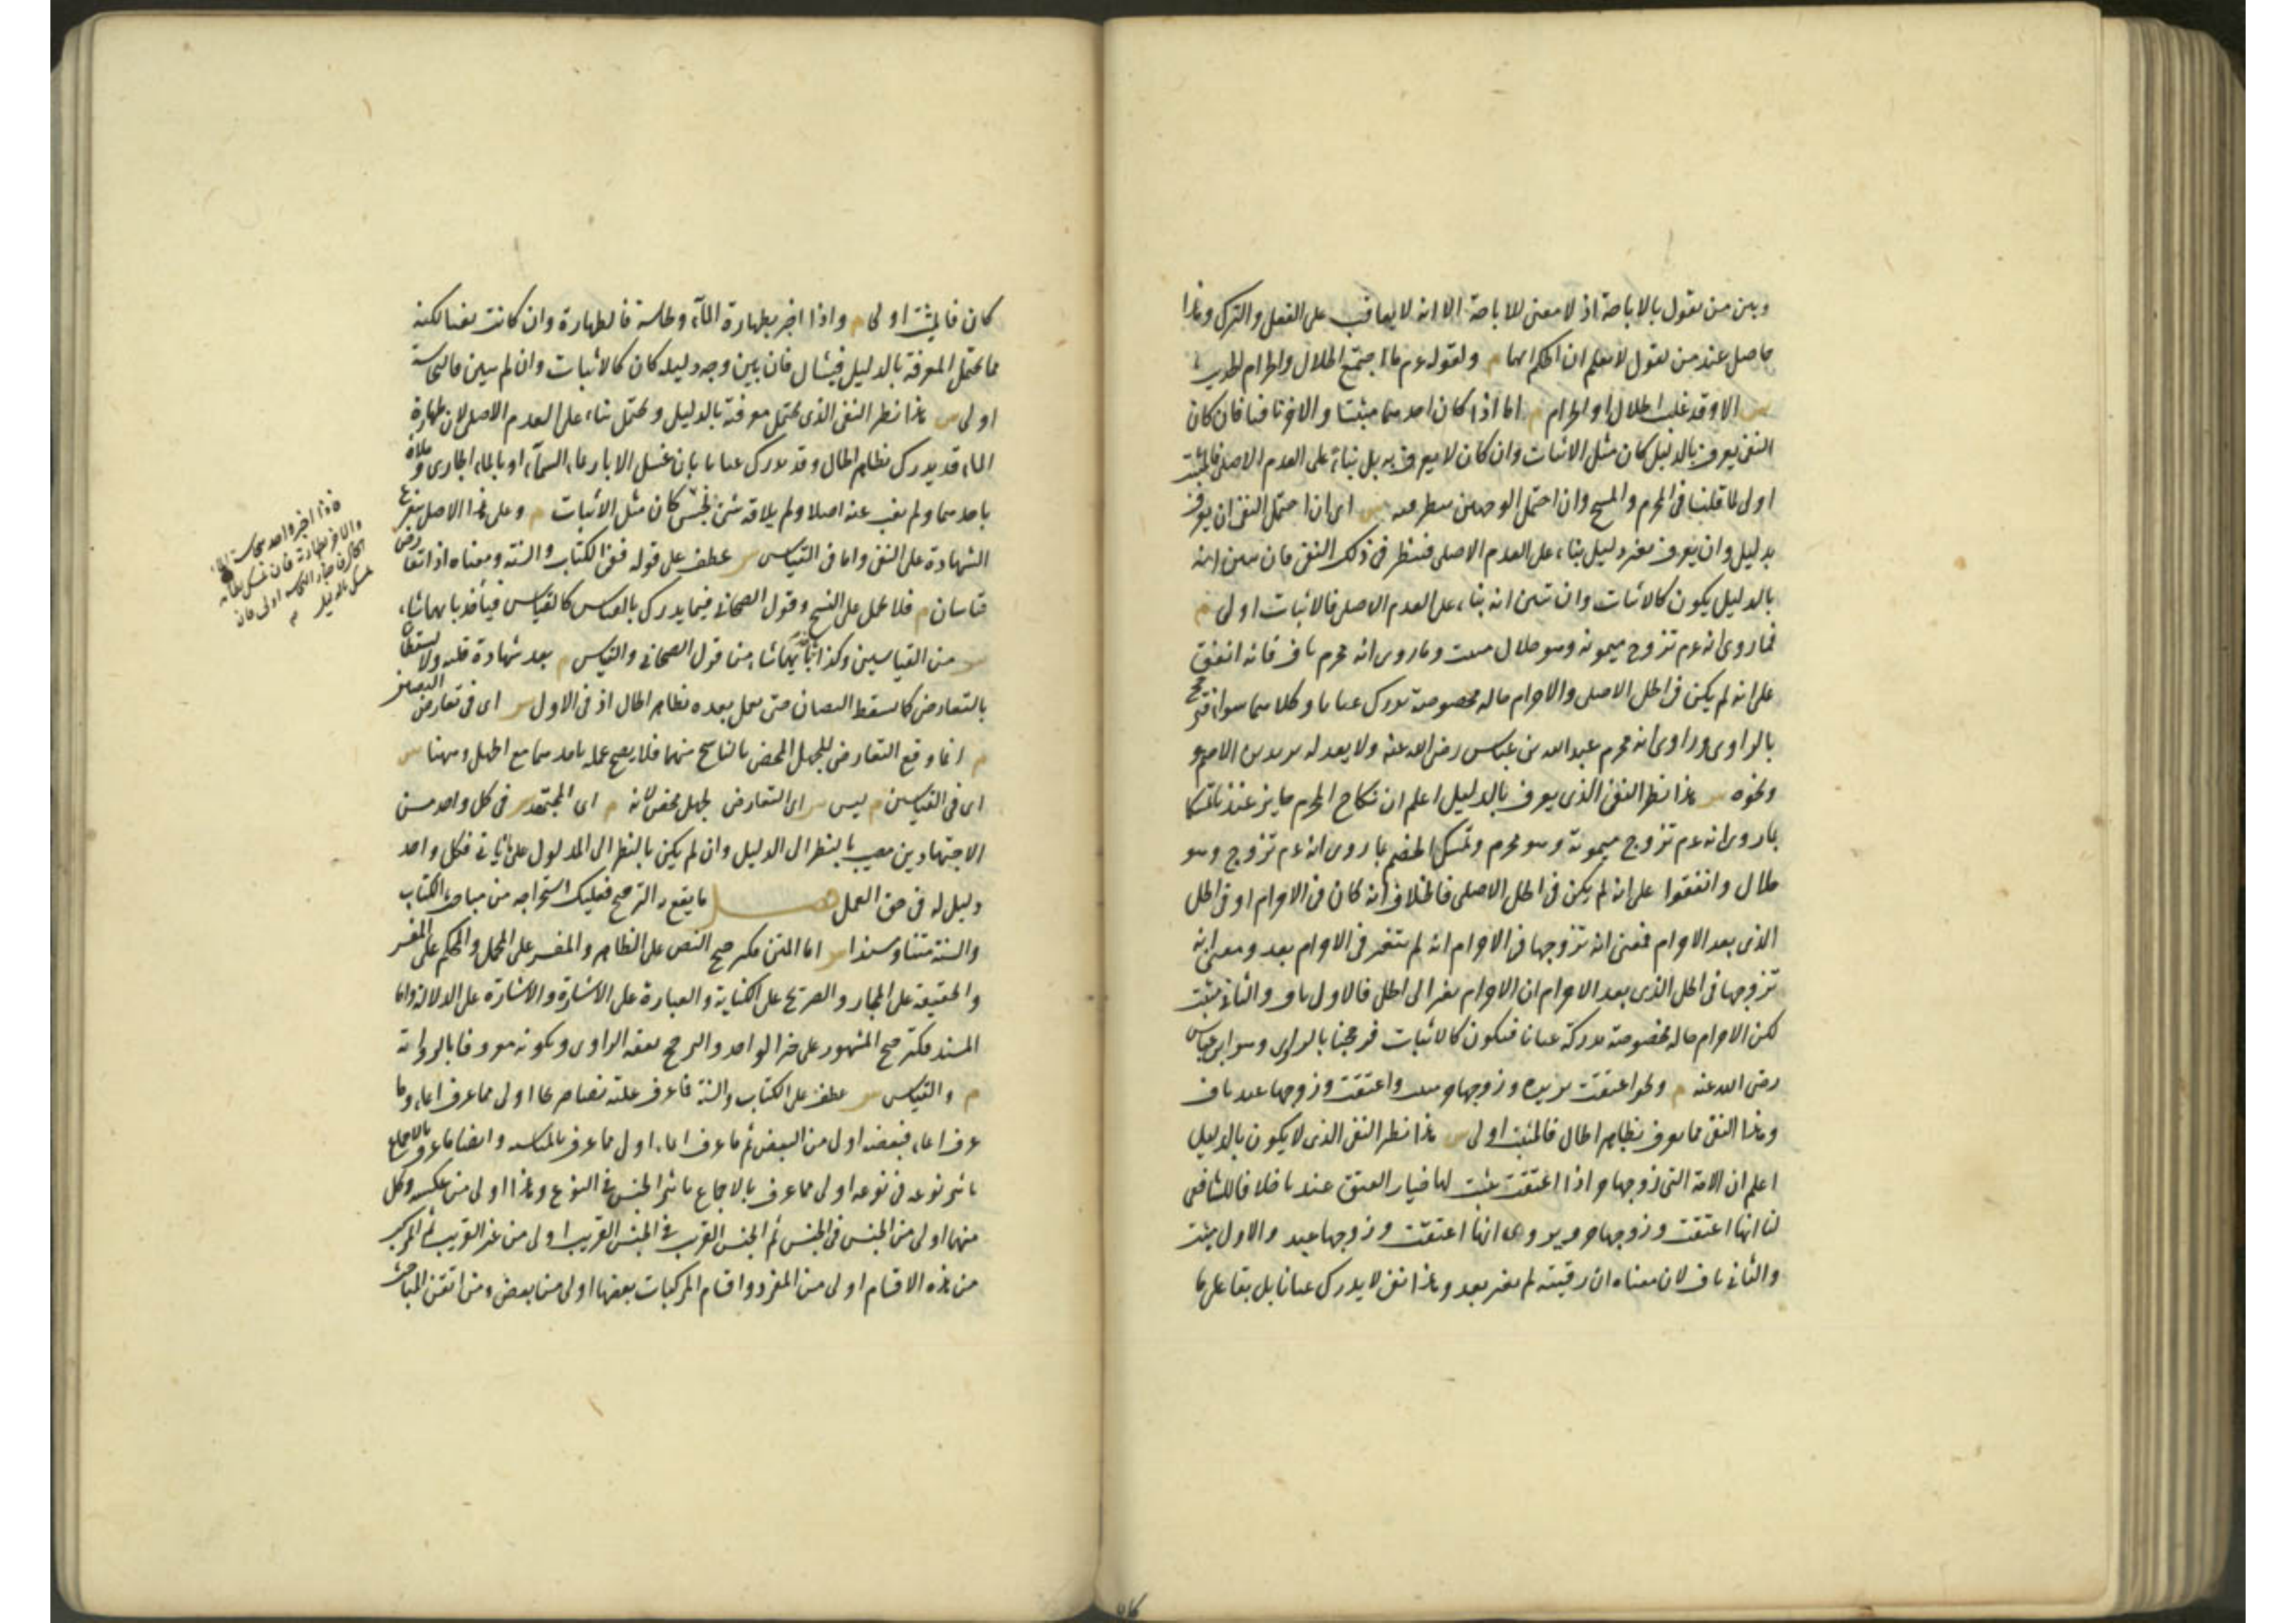 وبين من يقول بالاباحة اذ لا معنى للاباحة الا انه لا يعاقب على الفعل والترك وهذا
حاصل عند من يقول لا نعلم ان الحكم ايهما م ولقوله عم ما اجتمع الحلال والحرام الحديث
س الا وقد غلب الحلال او الحرام م اما اذا كان احدهما مثبتا والاخر نافيا فان كان
النفى يعرف بالدليل كان مثل الاثبات وان كان لا يعرف به بل بناء على العدم الاصلى فالمثبت
اولى لما قلنا فى المحرم والمبيح وان احتمل الوجهين ينظر فيه س اى ان احتمل النفى ان يعرف
بدليل وان يعرف بغير دليل بناء على العدم الاصلى فينظر فى ذلك النفى فان تبين انه
بالدليل يكون كالاثبات وان تبين انه بناء على العدم الاصلى فالاثبات اولى م
فما روى انه عم تزوج ميمونة وهو حلال مثبت وما روى انه محرم ناف فانه اتفق
على انه لم يكن فى الحل الاصلى والاحرام حالة مخصوصة تدرك عيانا وكلاهما سواء فرجح
بالراوى وراوى انه محرم عبد الله بن عباس رضى الله عنه ولا يعدله يزيد بن الاصم
ونحوه س هذا نظير النفى الذى يعرف بالدليل اعلم ان نكاح المحرم جايز عندنا تمسكا
بما روى انه عم تزوج ميمونة وهو محرم وتمسك الخصم بما روى انه عم تزوج وهو
حلال واتفقوا على انه لم يكن فى الحل الاصلى فالخلاف انه كان فى الاحرام او فى الحل
الذى بعد الاحرام فمعنى انه تزوجها فى الاحرام انه لم يتغير فى الاحرام بعد ومعنى انه
تزوجها فى الحل الذى بعد الاحرام ان الاحرام تغير الى الحل فالاول ناف والثانى مثبت
لكن الاحرام حالة مخصوصة مدركة عيانا فيكون كالاثبات فرجحنا بالراوى وهو ابن عباس
رضى الله عنه م ونحو اعتقت بريرة وزوجها حر مثبت واعتقت وزوجها عبد ناف
وهذا النفى مما يعرف بظاهر الحال فالمثبت اولى س هذا نظير النفى الذى لا يكون بالدليل
اعلم ان الامة التى زوجها حر اذا اعتقت يثبت لها خيار العتق عندنا خلافا للشافعى
لنا انها اعتقت وزوجها حر ويروى انها اعتقت وزوجها عبد والاول مثبت
والثانى ناف لان معناه ان رقيته لم تغير بعد وهذا نفى لا يدرك عيانا بل بقاء على ما
كان فالمثبت اولى م واذا اخبر بطهارة الماء ونجاسته فالطهارة وان كانت نفيا لكنه
مما يحتمل المعرفة بالدليل فيسأل فان بين وجه دليله كان كالاثبات وان لم يبين فالنجاسة
اولى س هذا نظير النفى الذى يحتمل معرفته بالدليل ويحتمل بناء على العدم الاصلى لان طهارة
الماء قد يدرك بظاهر الحال وقد يدرك عيانا بان غسل الاناء بماء السماء او بالماء الجارى وملاه
باحدهما ولم يغب عنه اصلا ولم يلاقه شئ نجس كان مثل الاثبات م وعلى هذا الاصل يتفرع
الشهادة على النفى واما فى القياس س عطف على قوله ففى الكتاب والسنة ومعناه اذا تعارض
قياسان م فلا يحمل على النسخ وقول الصحابى فيما يدرك بالقياس كالقياس فيأخذ بايهما شاء
س من القياسين وكذا يأخذ بايهما شاء من قول الصحابى والقياس م بعد شهادة قلبه ولا يسقطان
بالتعارض كما يسقط النصان حتى يعمل بعده بظاهر الحال اذ فى الاول س اى فى تعارض النصين
م انما وقع التعارض للجهل المحض بالناسخ منهما فلا يصح عمله باحدهما مع الجهل وههنا س
اى فى القياسين م ليس س اى التعارض لجهل محض لانه م اى المجتهد س فى كل واحد من
الاجتهادين مصيب بالنظر الى الدليل وان لم يكن بالنظر الى المدلول على ما يأتى فكل واحد
دليل له فى حق العمل فصل ما يقع به الترجيح فعليك استخراجه من مباحث الكتاب
والسنة متنا وسندا س اما المتن فكترجيح النص على الظاهر والمفسر على المجمل والمحكم على المفسر
والحقيقة على المجاز والصريح على الكناية والعبارة على الاشارة والاشارة على الدلالة واما
السند فكترجيح المشهور على خبر الواحد والترجيح بفقه الراوى وبكونه معروفا بالرواية
م والقياس س عطف على الكتاب والسنة فما عرف علته نصا صريحا اولى مما عرف ايماء وما
عرف ايماء فبعضه اولى من البعض ثم ما عرف ايماء اولى مما عرف بالمناسبة وايضا ما عرف بالاجماع
تاثير نوعه فى نوعه اولى مما عرف بالاجماع تاثير الجنس فى النوع وهذا اولى من عكسه وكل
منهما اولى من الجنس فى الجنس ثم الجنس القريب فى الجنس القريب اولى من غير القريب ثم المركب
من هذه الاقسام اولى من المفرد واقسام المركبات بعضها اولى من بعض ومن اتقن المباحث
فاذا اخبر واحد بنجاسة الماء
والاخر بطهارته فان تمسك بظاهر
الحال فاخبار النجاسة اولى وان
تمسك بالدليل م